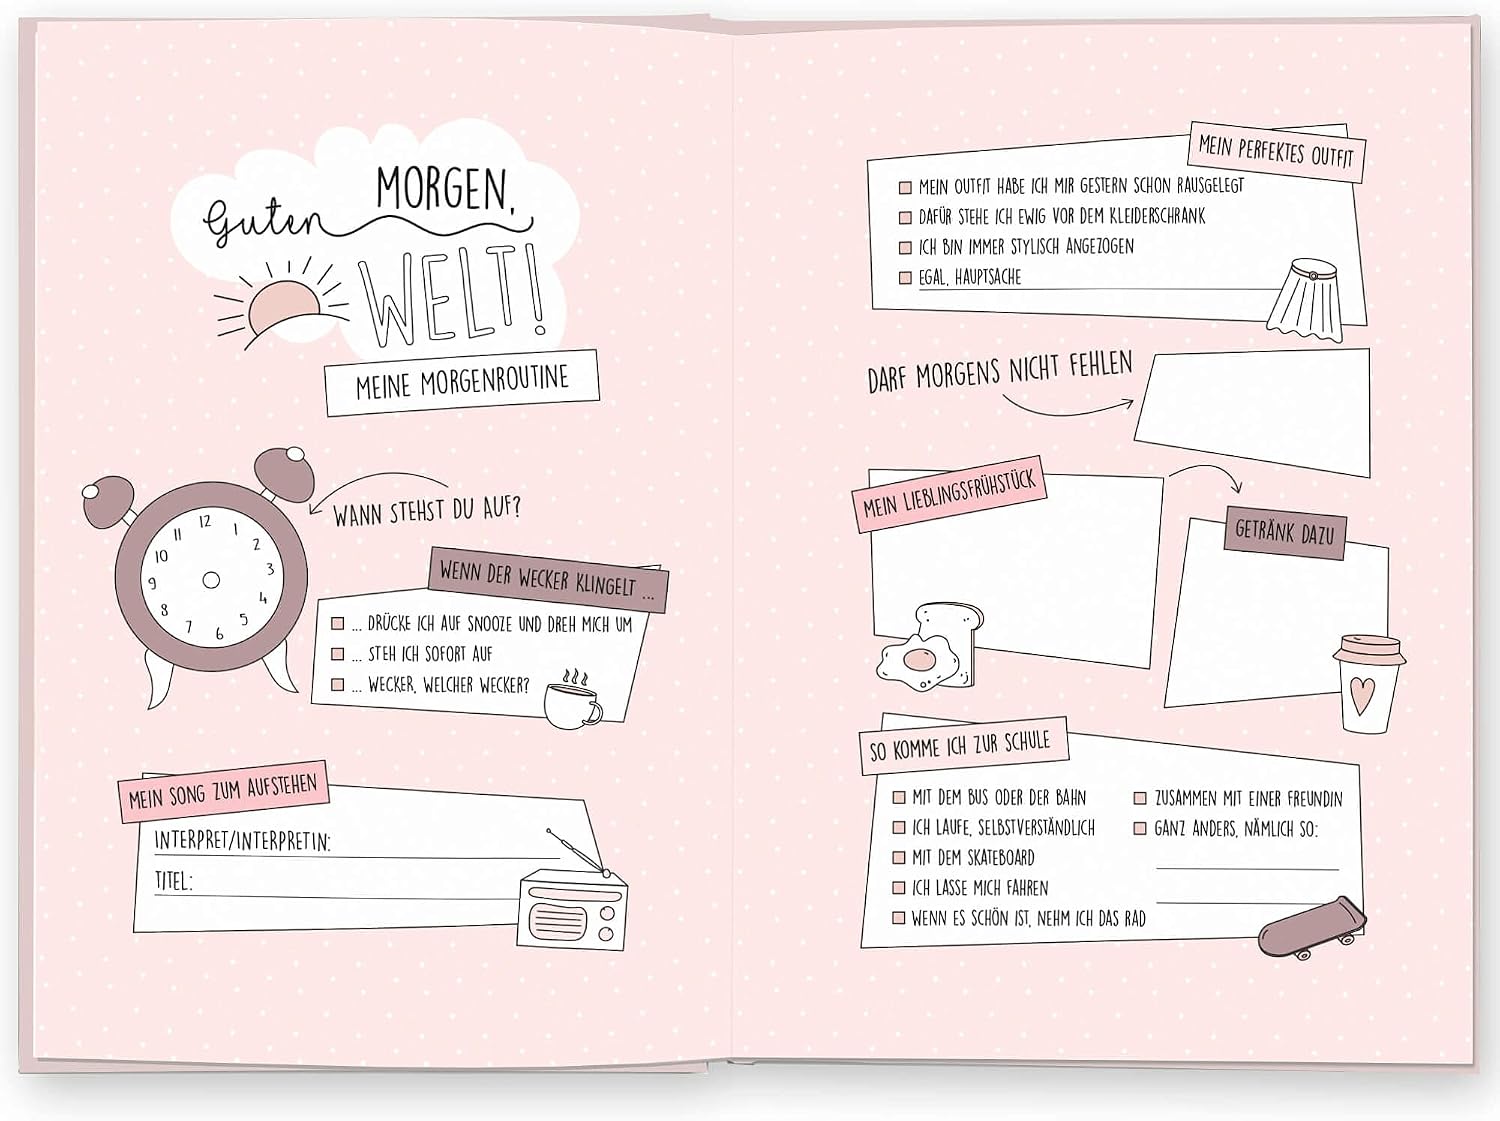 Guten MORGEN,
WELT!
MEINE MORGENROUTINE
WANN STEHST DU AUF?
12
1
2
3
4
5
6
7
8
9
10
11
WENN DER WECKER KLINGELT ...
... DRÜCKE ICH AUF SNOOZE UND DREH MICH UM
... STEH ICH SOFORT AUF
... WECKER, WELCHER WECKER?
MEIN SONG ZUM AUFSTEHEN
INTERPRET/INTERPRETIN:
TITEL:
MEIN PERFEKTES OUTFIT
MEIN OUTFIT HABE ICH MIR GESTERN SCHON RAUSGELEGT
DAFÜR STEHE ICH EWIG VOR DEM KLEIDERSCHRANK
ICH BIN IMMER STYLISCH ANGEZOGEN
EGAL, HAUPTSACHE
DARF MORGENS NICHT FEHLEN
MEIN LIEBLINGSFRÜHSTÜCK
GETRÄNK DAZU
SO KOMME ICH ZUR SCHULE
MIT DEM BUS ODER DER BAHN
ICH LAUFE, SELBSTVERSTÄNDLICH
MIT DEM SKATEBOARD
ICH LASSE MICH FAHREN
WENN ES SCHÖN IST, NEHM ICH DAS RAD
ZUSAMMEN MIT EINER FREUNDIN
GANZ ANDERS, NÄMLICH SO: